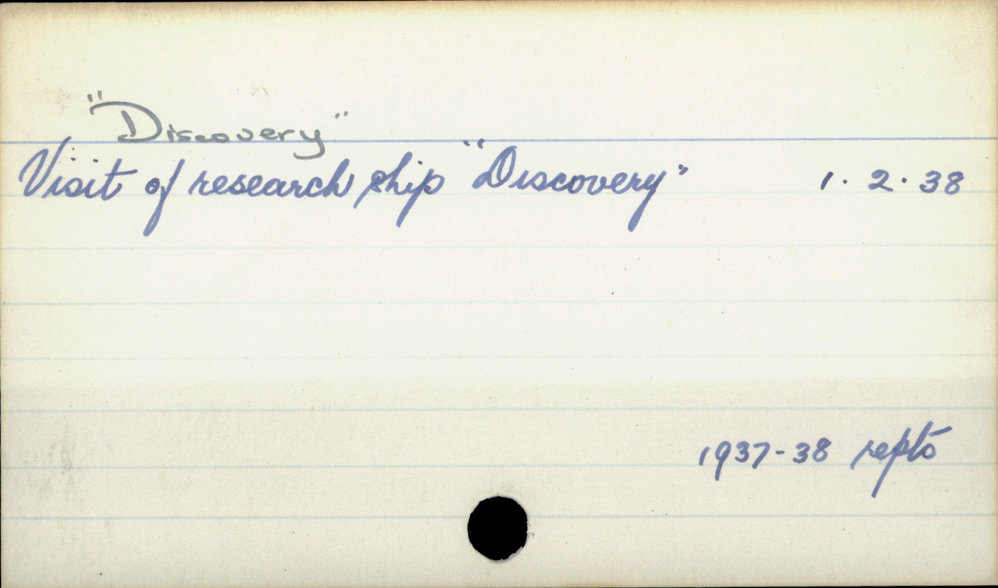 "Discovery"
Visit of research ship "Discovery" 1. 2. 38
1937-38 repts